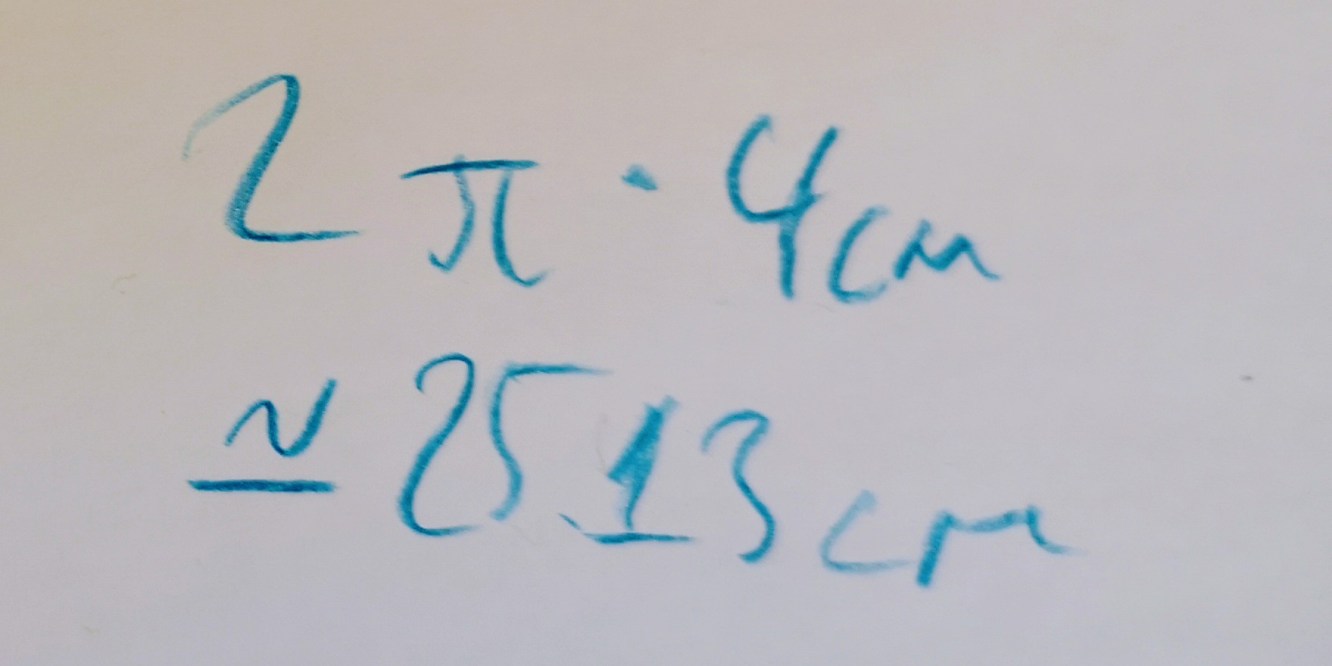 2π · 4cm
≃ 25.13cm